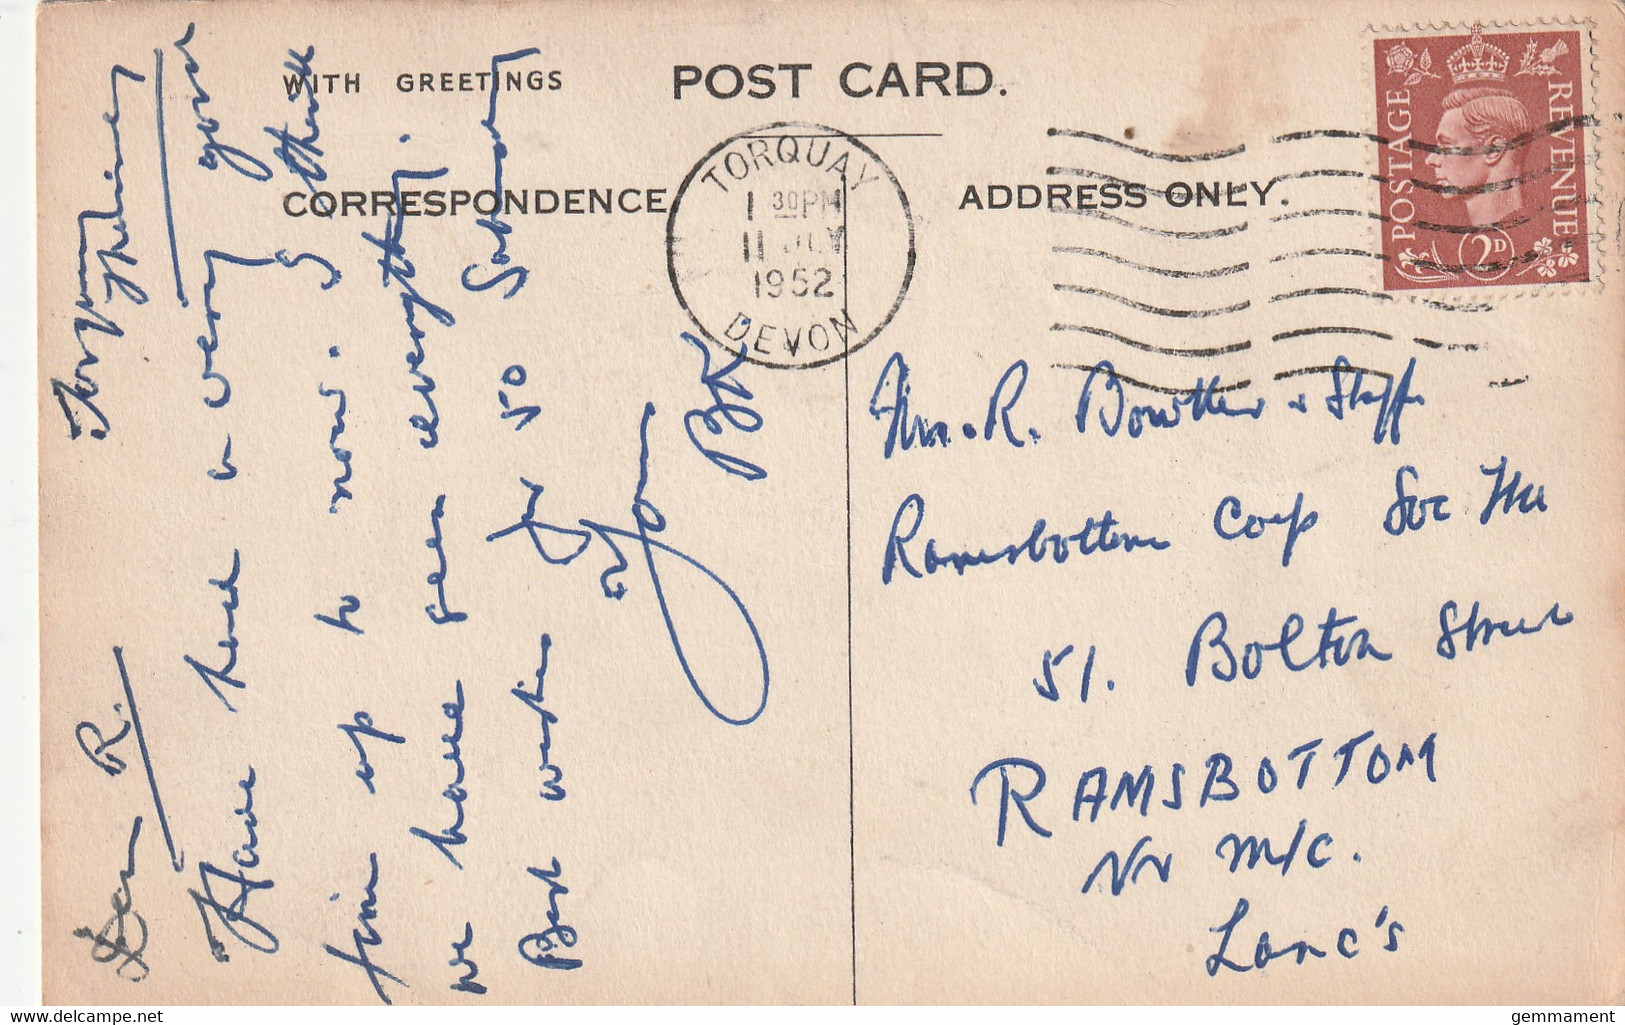 WITH GREETINGS
POST CARD.
CORRESPONDENCE
ADDRESS ONLY.
TORQUAY
1 30 PM
11 JLY
1952
DEVON
POSTAGE
REVENUE
2D
Torquay
Dear R.
Have had a very good
time up to now. I think
we have seen everything.
Best wishes for so Saturday
Yours
BK
R. Bowker & Staff
Ramsbottom Coop Soc
51. Bolton Street
RAMSBOTTOM
Nr M/C.
Lanc's
delcampe.net
gemmament